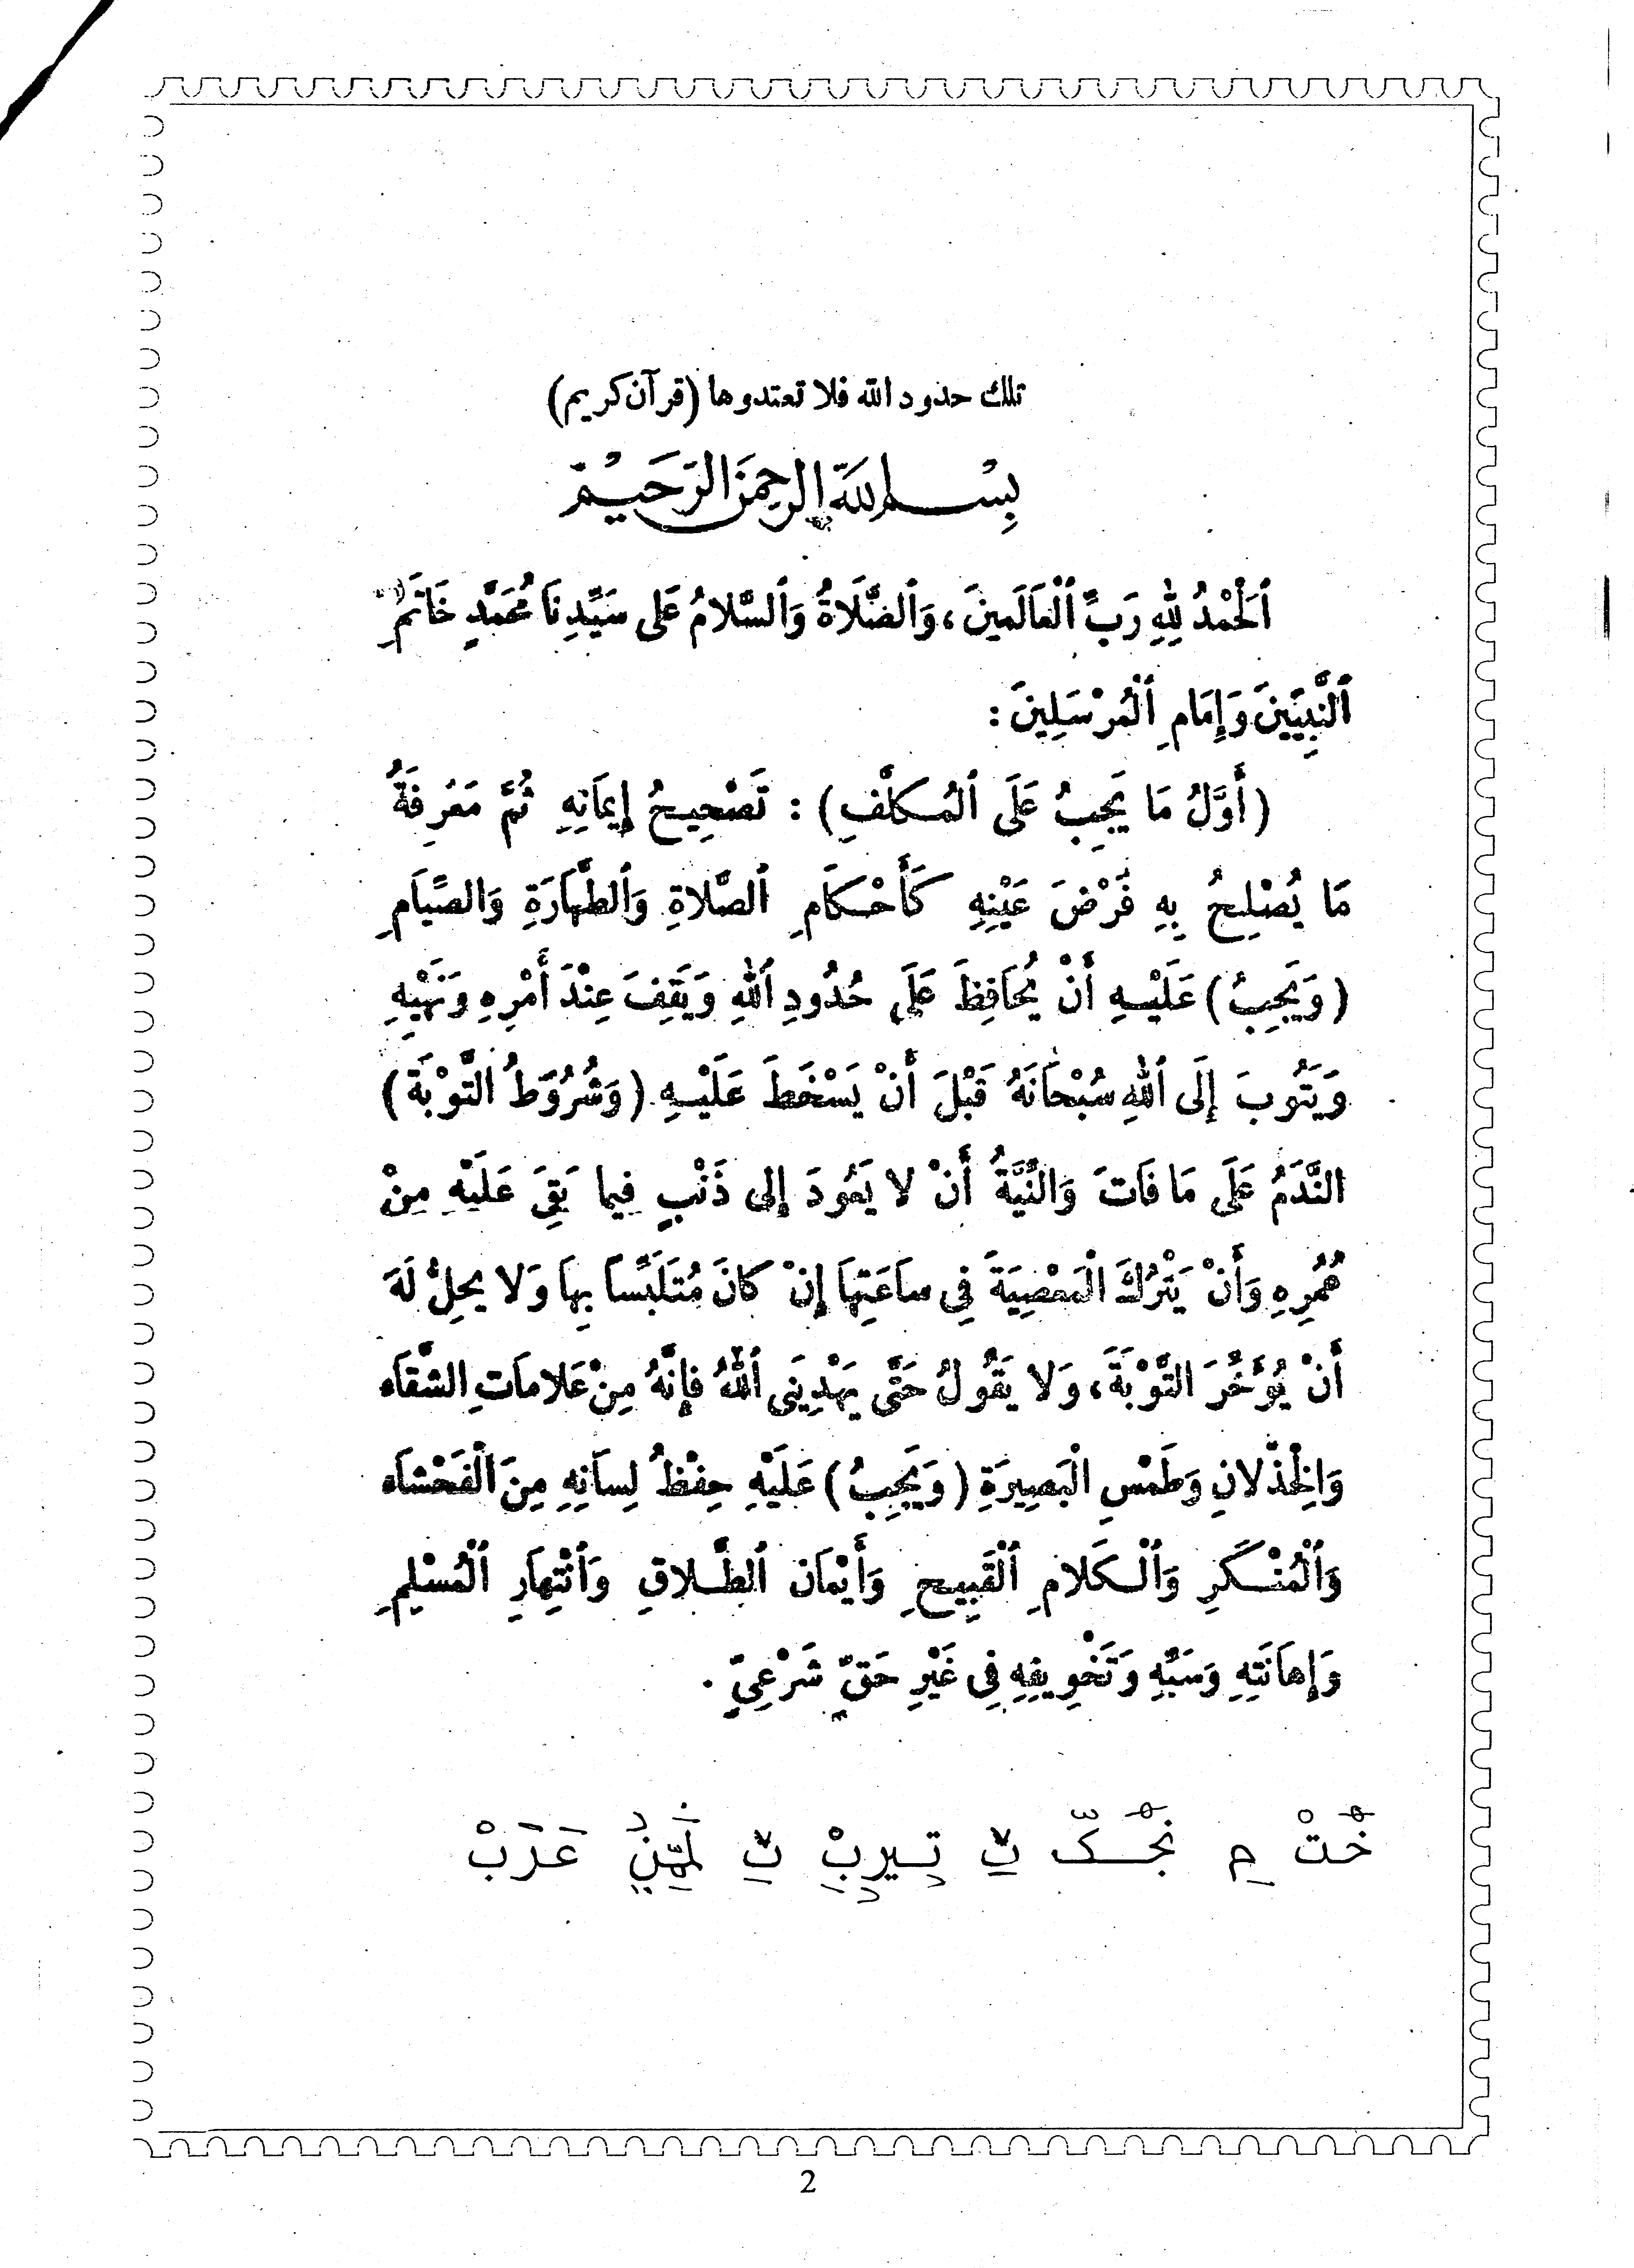 تلك حدود الله فلا تعتدوها (قرآن كريم)
بِسْمِ اللَّهِ الرَّحْمَنِ الرَّحِيمِ
ٱلْحَمْدُ لِلّٰهِ رَبِّ ٱلْعَالَمِينَ، وَٱلصَّلَاةُ وَٱلسَّلَامُ عَلَى سَيِّدِنَا مُحَمَّدٍ خَاتَمِ
ٱلنَّبِيِّينَ وَإِمَامِ ٱلْمُرْسَلِينَ :
(أَوَّلُ مَا يَجِبُ عَلَى ٱلْمُكَلَّفِ) : تَصْحِيحُ إِيمَانِهِ ثُمَّ مَعْرِفَةُ
مَا يُصْلِحُ بِهِ فَرْضَ عَيْنِهِ كَأَحْكَامِ ٱلصَّلَاةِ وَٱلطَّهَارَةِ وَالصِّيَامِ
(وَيَجِبُ) عَلَيْهِ أَنْ يُحَافِظَ عَلَى حُدُودِ ٱللهِ وَيَقِفَ عِنْدَ أَمْرِهِ وَنَهْيِهِ
وَيَتُوبَ إِلَى ٱللهِ سُبْحَانَهُ قَبْلَ أَنْ يَسْخَطَ عَلَيْهِ. (وَشُرُوطُ التَّوْبَةِ)
النَّدَمُ عَلَى مَا فَاتَ وَالنِّيَّةُ أَنْ لا يَعُودَ إِلى ذَنْبٍ فِيما بَقِيَ عَلَيْهِ مِنْ
عُمُرِهِ وَأَنْ يَتْرُكَ الْمَعْصِيَةَ فِي ساعَتِهَا إِنْ كانَ مُتَلَبِّساً بِهَا وَلا يحِلُّ لَهُ
أَنْ يُؤَخِّرَ التَّوْبَةَ، وَلا يَقُولُ حَتَّى يَهْدِيَنِي ٱللهُ فَإِنَّهُ مِنْ عَلامَاتِ الشَّقَاءِ
وَالْخِذْلانِ وَطَمْسِ الْبَصِيرَةِ (وَيَجِبُ) عَلَيْهِ حِفْظُ لِسَانِهِ مِنَ الْفَحْشاءِ
وَٱلْمُنْكَرِ وَٱلْكَلَامِ ٱلْقَبِيحِ وَأَيْمَانِ ٱلطَّلاقِ وَٱنْتِهَارِ ٱلْمُسْلِمِ
وَإِهَانَتِهِ وَسَبِّهِ وَتَخْوِيفِهِ فِي غَيْرِ حَقٍّ شَرْعِيٍّ .
2